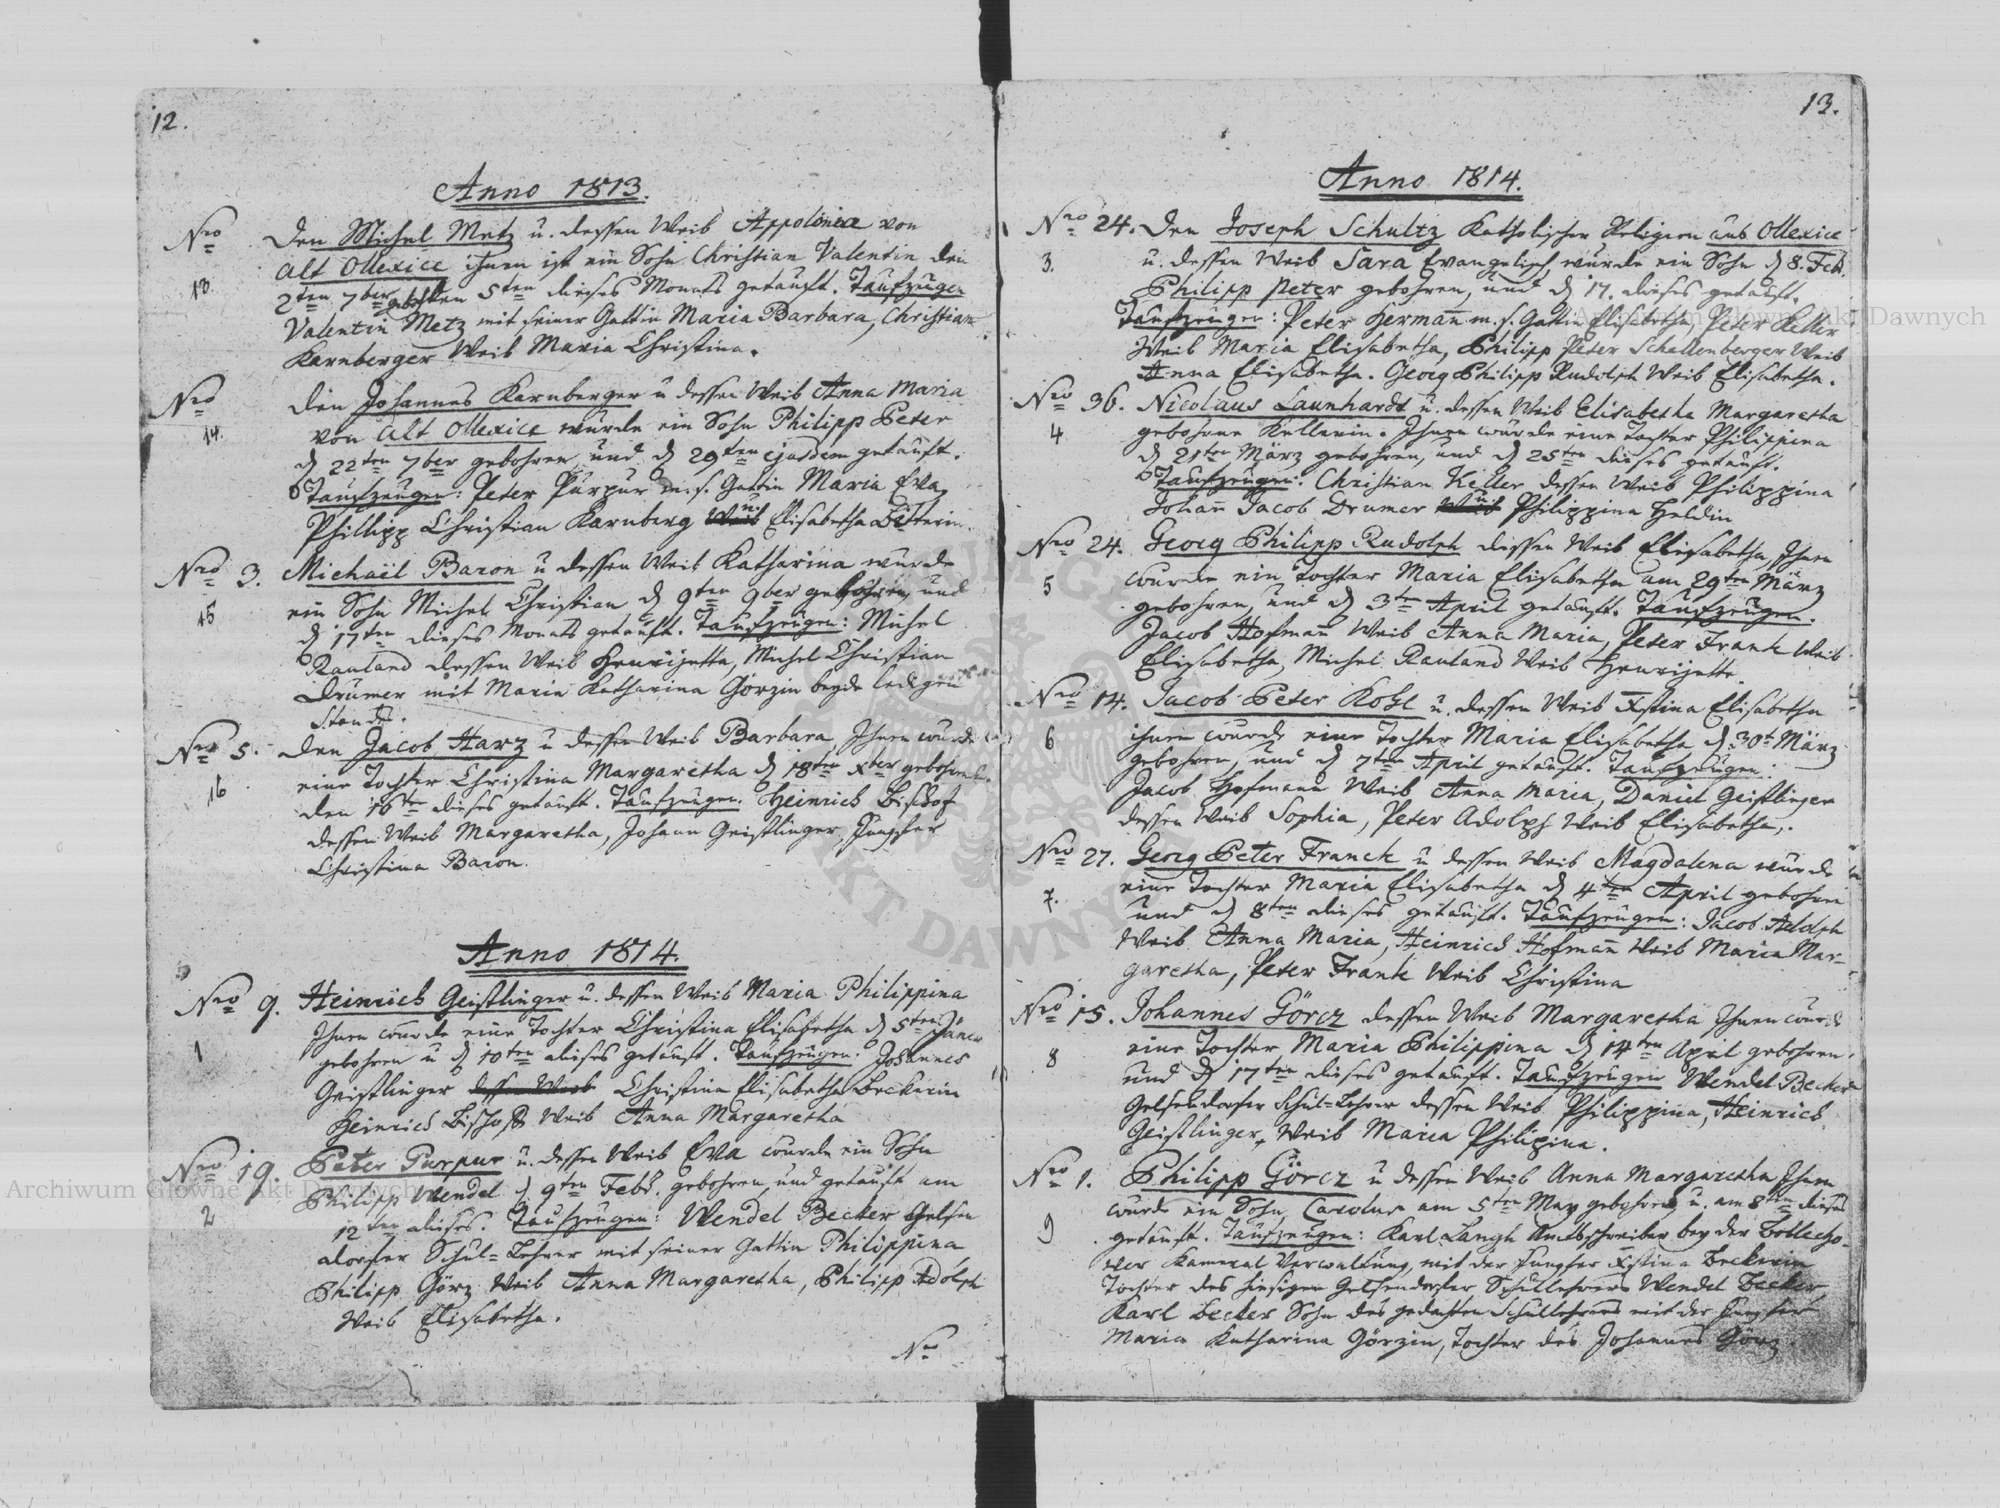 12.
Anno 1813.
Nro
13.
Den Michel Metz u. dessen Weib Appolonia von
Alt Mexice ihnen ist ein Sohn Christian Valentin den
2ten 7ber gebohren 5ten dieses Monats getauft. Taufzeugen
Valentin Metz mit seiner Gattin Maria Barbara, Christian
Karnberger Weib Maria Christina.
Nro
14.
Den Johannes Karnberger u dessen Weib Anna Maria
von Alt Mexice wurde ein Sohn Philipp Peter
d 22ten 7ber gebohren und d 29ten ejusdem getauft.
Taufzeugen: Peter Purpur m. s. Gattin Maria Eva
Phillipp Christian Karnberg und Elisabetha
Nro 3.
15
Michaël Baron u dessen Weib Katharina wurde
ein Sohn Michel Christian d 9ten 9ber gebohren, und
d 17ten dieses Monats getauft. Taufzeugen: Michel
Rauland dessen Weib Henrijetta, Michel Christian
Drumer mit Maria Katharina Görzin beyde ledigen
Stands.
Nro 5.
16
Den Jacob Harz u dessen Weib Barbara, Ihnen wurde
eine Tochter Christina Margaretha d 18ten Xber gebohren
den 16ten dieses getauft. Taufzeugen. Heinrich Bischof
dessen Weib Margaretha, Johann Geistlinger, Jungfer
Christina Baron.
Anno 1814.
Nro 9.
1
Heinrich Geistlinger u. dessen Weib Maria Philippina
Ihnen wurde eine Tochter Christina Elisabetha d 5ten Jäner
gebohren u d 10ten dieses getauft. Taufzeugen: Johannes
Geistlinger dessen Weib Christina Elisabetha Beckerin
Heinrich Bischoff Weib Anna Margaretha
Nro 19.
2
Peter Purpur u. dessen Weib Eva wurde ein Sohn
Philipp Wendel d 9ten Feb. gebohren, und getauft am
12ten dieses. Taufzeugen: Wendel Becker Gelsen
dorfer Schul=Lehrer mit seiner Gattin Philippina
Philipp Görz Weib Anna Margaretha, Philipp Adolph
Weib Elisabetha.
Nro
13.
Anno 1814.
Nro 24.
3.
Den Joseph Schultz Katholischer Religion aus Mexice
u. dessen Weib Sara Evangelisch, wurde ein Sohn d 8. Feb.
Philipp Peter gebohren, und d 17. dieses getauft.
Taufzeugen: Peter Hermañ m. s. Gattin Elisabetha, Peter Keller
Weib Maria Elisabetha, Philipp Peter Schellenberger Weib
Anna Elisabetha. Georg Philipp Rudolph Weib Elisabetha.
Nro 36.
4
Nicolaus Launhardt u. dessen Weib Elisabetha Margaretha
gebohrne Kellerin. Ihnen wurde eine Tochter Philippina
d 21ten März gebohren, und d 25ten dieses getauft.
Taufzeugen: Christian Keller dessen Weib Philippina
Johañ Jacob Drumer und Philippina Heldin
Nro 24.
5
Georg Philipp Rudolph dessen Weib Elisabetha, Ihnen
wurde ein Tochter Maria Elisabetha am 29ten März
gebohren, und d 3ten April getauft. Taufzeugen.
Jacob Hofmañ Weib Anna Maria, Peter Frank Weib
Elisabetha, Michel Rauland Weib Henrijetta.
Nro 14.
6
Jacob Peter Kohl u. dessen Weib Xstina Elisabetha
ihnen wurde eine Tochter Maria Elisabetha d 30t März
gebohren, und d 7ten April getauft. Taufzeugen:
Jacob Hofmann Weib Anna Maria, Daniel Geistlinger
dessen Weib Sophia, Peter Adolph Weib Elisabetha.
Nro 27.
7.
Georg Peter Franck u dessen Weib Magdalena wurde
eine Tochter Maria Elisabetha d 4ten April gebohren
und d 8ten dieses getauft. Taufzeugen: Jacob Adolph
Weib Anna Maria, Heinrich Hofmañ Weib Maria Mar-
garetha, Peter Frank Weib Christina
Nro 15.
8
Johannes Görcz dessen Weib Margaretha Ihnen wurde
eine Tochter Maria Philippina d 14ten April gebohren,
und d 17ten dieses getauft. Taufzeugen Wendel Becker
Gelsendorfer Schul=Lehrer dessen Weib Philippina, Heinrich
Geistlinger, Weib Maria Philipina.
Nro 1.
9
Philipp Görcz u dessen Weib Anna Margaretha Ihnen
wurde ein Sohn Carolus am 5ten May gebohren, u. am 8ten dieses
getauft. Taufzeugen: Karl Langh Amtsschreiber bey der Bollecho-
ver Kameral Verwaltung, mit der Jungfer Xstina Beckerin
Tochter des hiesigen Gelsendorfer Schullehrers Wendel Becker,
Karl Becker Sohn des gedachten Schullehrers mit der Jungfer
Maria Katharina Görzin, Tochter des Johannes Görz.
Archiwum Główne Akt Dawnych
Archiwum Główne Akt Dawnych